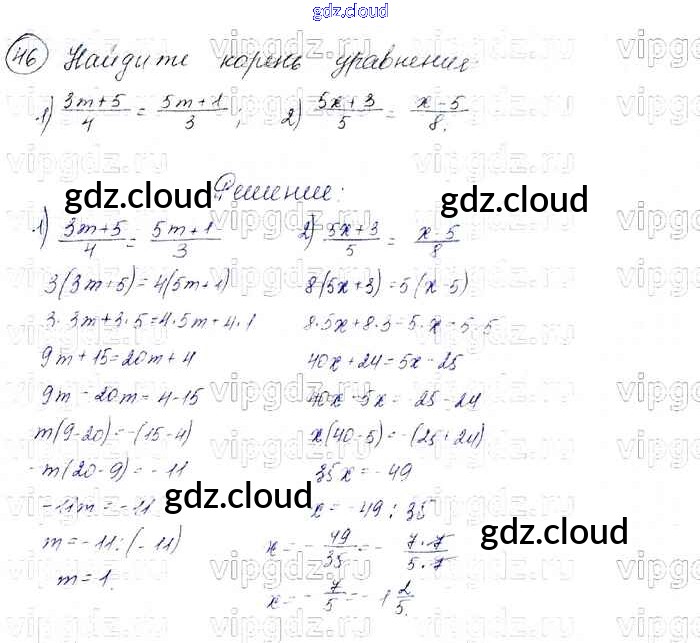 gdz.cloud
46 Найдите корень уравнения.
1) (3m+5)/4 = (5m+1)/3; 2) (5x+3)/5 = (x-5)/8.
Решение:
gdz.cloud gdz.cloud
1) (3m+5)/4 = (5m+1)/3
3(3m+5)=4(5m+1)
3·3m+3·5=4·5m+4·1
9m+15=20m+4
9m-20m=4-15
m(9-20)=-(15-4)
-m(20-9)=-11
-11m=-11
m=-11:(-11)
m=1.
2) (5x+3)/5 = (x-5)/8
8(5x+3)=5(x-5)
8·5x+8·3=5·x-5·5
40x+24=5x-25
40x-5x=-25-24
x(40-5)=-(25+24)
35x=-49
x=-49:35
x=-49/35=-(7·7)/(5·7)
x=-7/5=-1 2/5.
gdz.cloud
gdz.cloud
vipgdz.ru